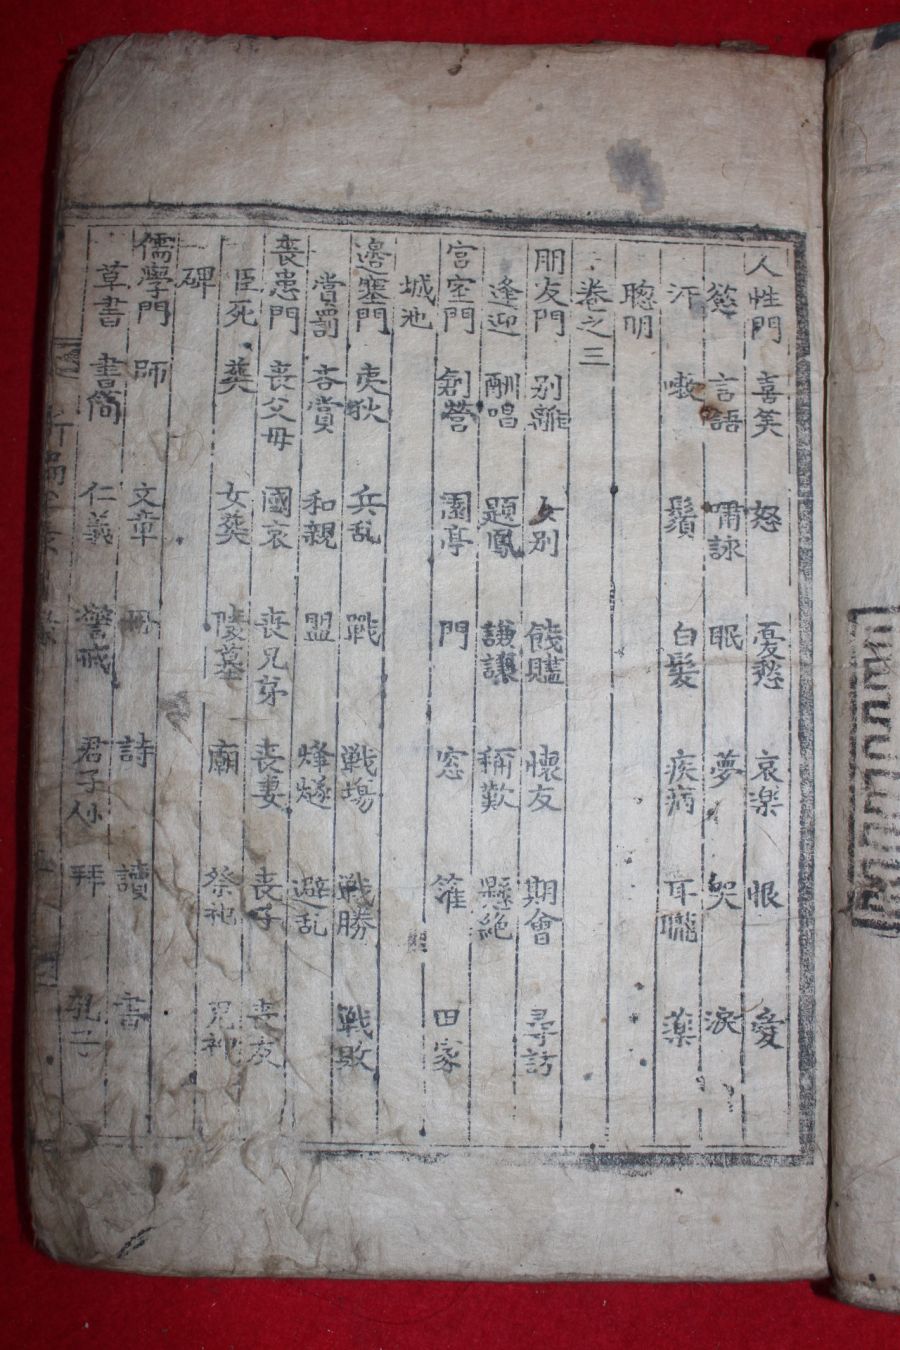 人性門 喜笑 怒 憂愁 哀楽 恨 愛
慾 言語 嘯詠 眠 夢 哭 淚
汗 嗽 鬚 白髮 疾病 耳聾 藥
聰明
卷之三
朋友門 别離 女别 餞贐 懷友 期會 尋訪
逢迎 酬唱 題鳳 謙讓 稱歎 懸絶
宮室門 創营 園亭 門 窓 籬 田家
城池
邊塞門 夷狄 兵乱 戰 戦塲 戦勝 戦敗
賞罰 吝賞 和親 盟 烽燧 避乱
喪患門 喪父母 國哀 喪兄弟 喪妻 喪子 喪友
臣死 葬 女葬 陵墓 廟 祭祀 鬼神
碑
儒學門 師 文章 冊 詩 讀 書
草書 書简 仁義 警戒 君子小人 拜